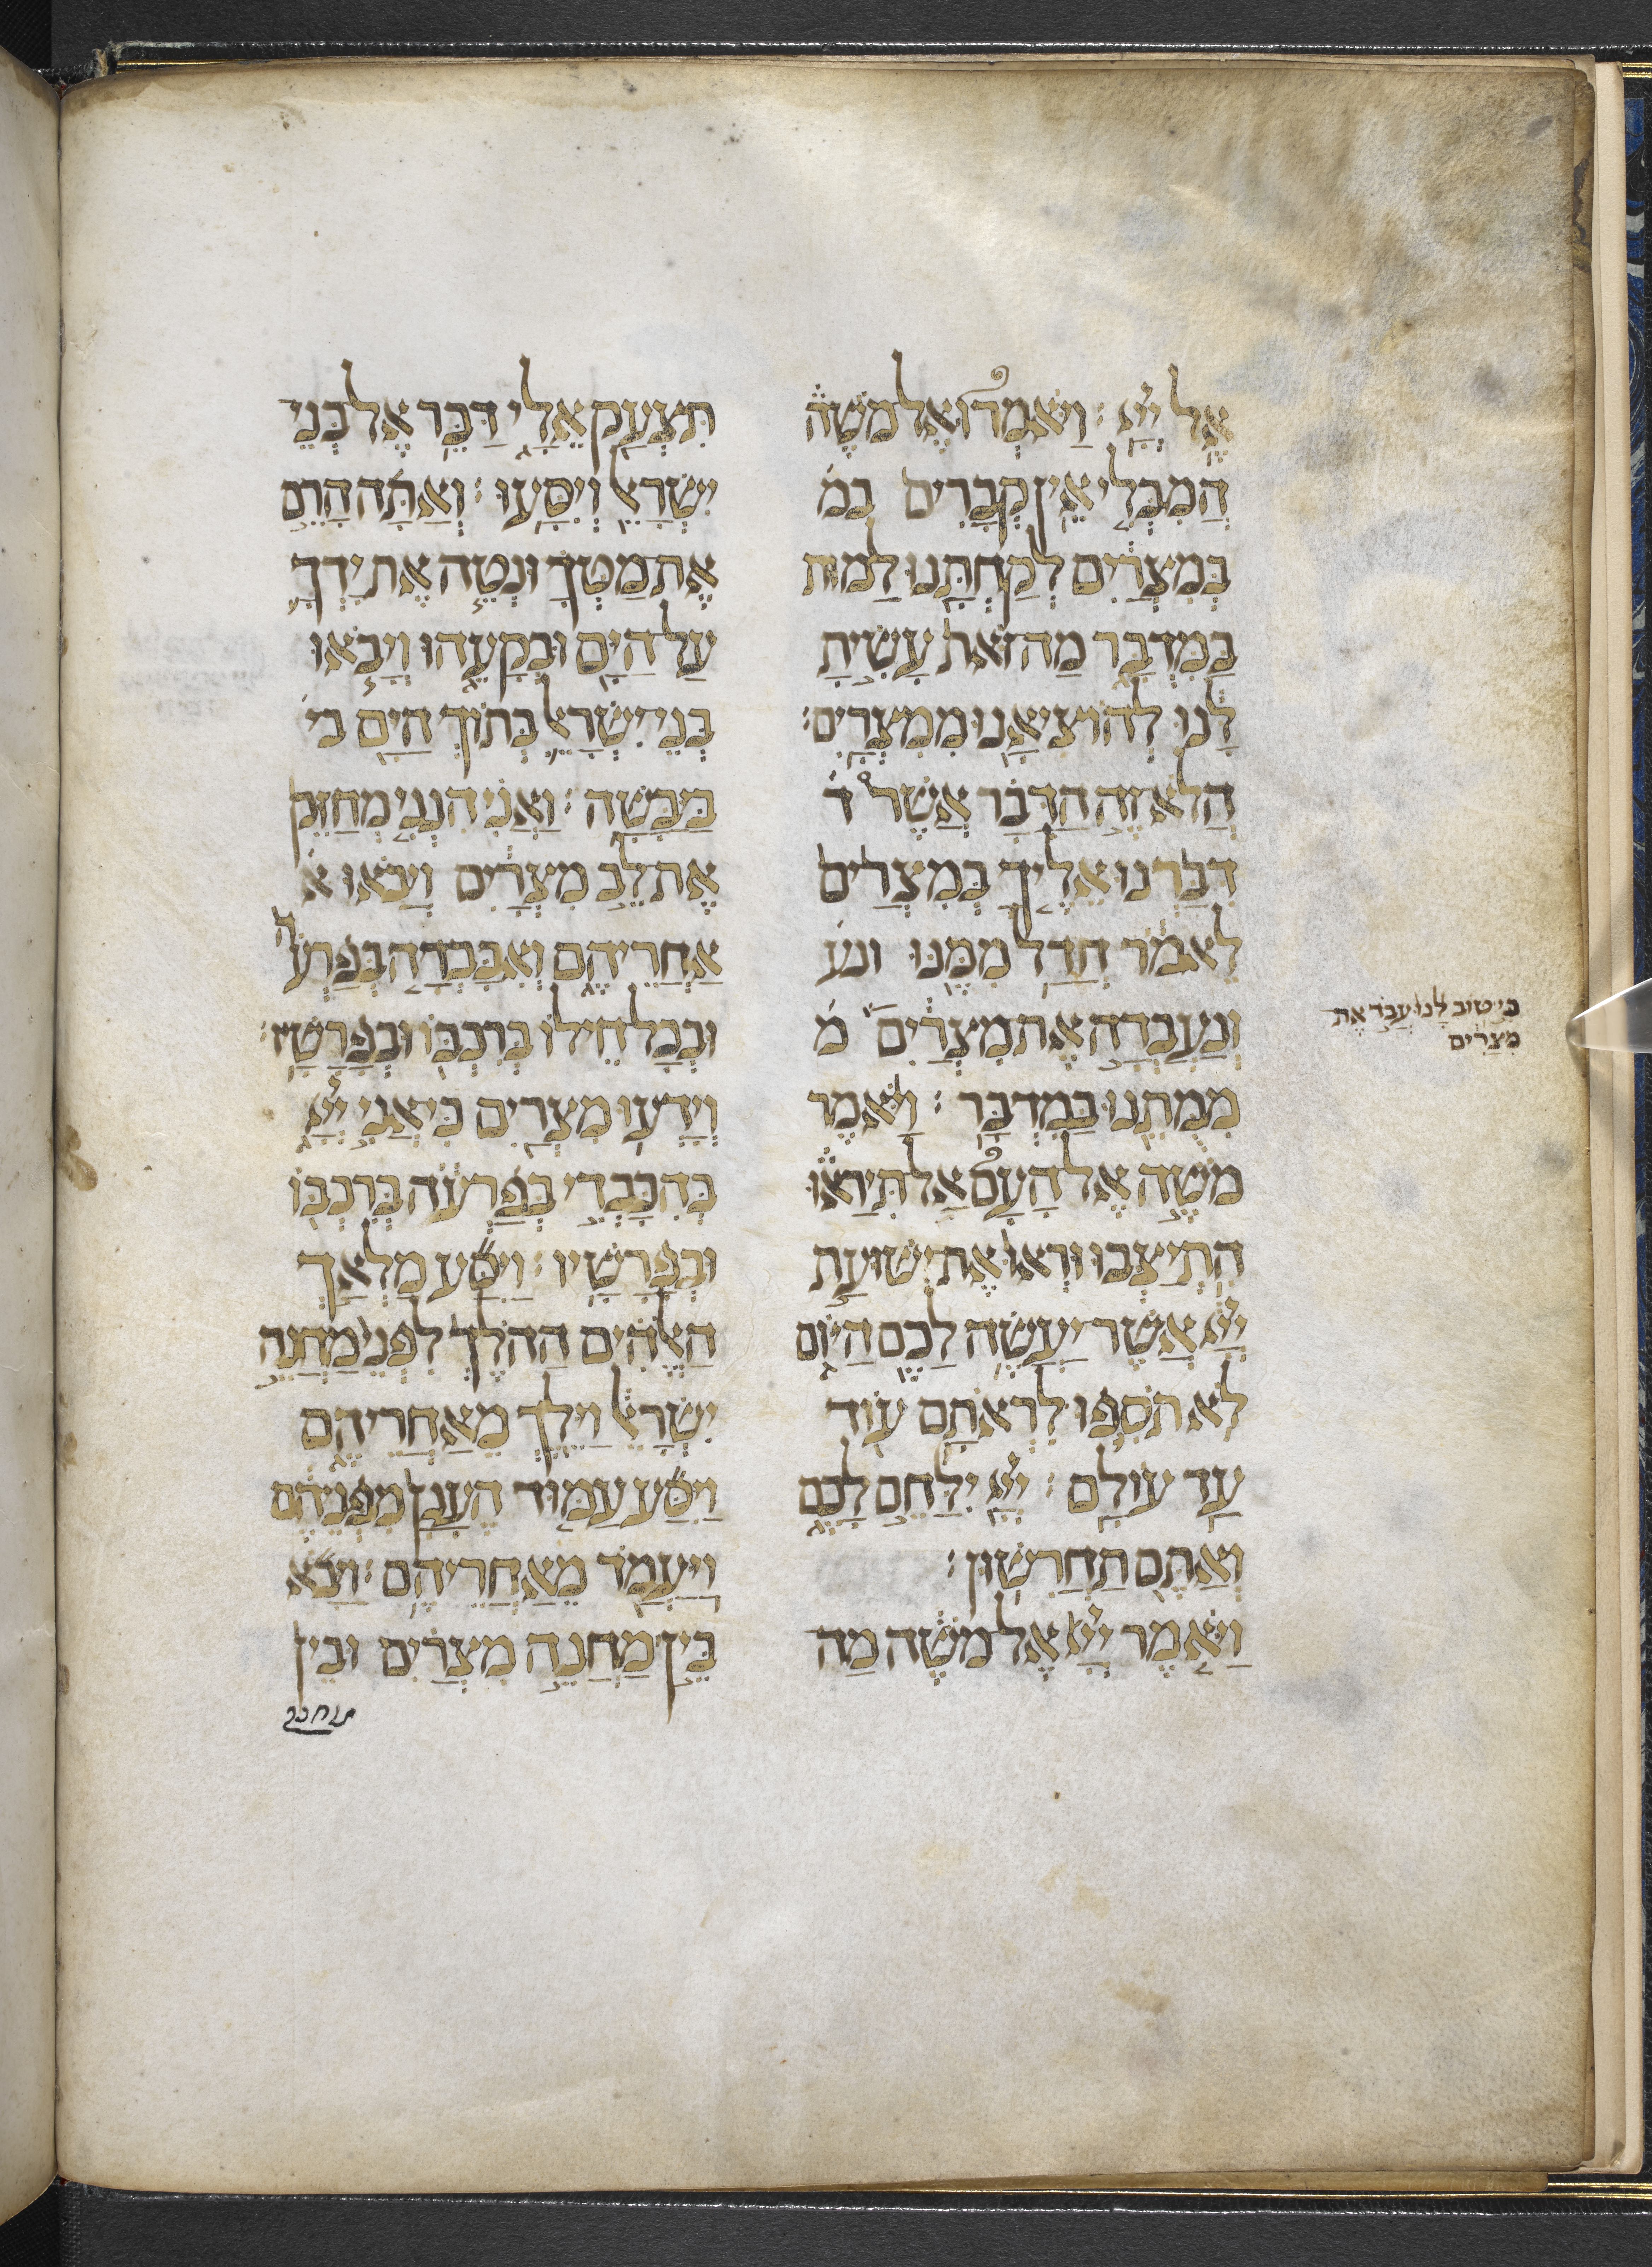 אֶל יְיָ׃ וַיֹּאמְרוּ אֶל מֹשֶׁה
הֲמִבְּלִי אֵין קְבָרִים במ
בְּמִצְרַיִם לְקַחְתָּנוּ לָמוּת
בַּמִּדְבָּר מַה זֹּאת עָשִׂיתָ
לָּנוּ לְהוֹצִיאָנוּ מִמִּצְרָיִם׃
הֲלֹא זֶה הַדָּבָר אֲשֶׁר ד
דִּבַּרְנוּ אֵלֶיךָ בְמִצְרַיִם
לֵאמֹר חֲדַל מִמֶּנּוּ ונע
וְנַעַבְדָה אֶת מִצְרָיִם מ
מִמֻּתֵנוּ בַּמִּדְבָּר׃ וַיֹּאמֶר
מֹשֶׁה אֶל הָעָם אַל תִּירָאוּ
הִתְיַצְּבוּ וּרְאוּ אֶת יְשׁוּעַת
יְיָ אֲשֶׁר יַעֲשֶׂה לָכֶם הַיּוֹם
לֹא תֹסִפוּ לִרְאֹתָם עוֹד
עַד עוֹלָם׃ יְיָ יִלָּחֵם לָכֶם
וְאַתֶּם תַּחֲרִשׁוּן׃
וַיֹּאמֶר יְיָ אֶל מֹשֶׁה מַה
תִּצְעַק אֵלָי דַּבֵּר אֶל בְּנֵי
יִשְׂרָאֵל וְיִסָּעוּ׃ וְאַתָּה הָרֵם
אֶת מַטְּךָ וּנְטֵה אֶת יָדְךָ
עַל הַיָּם וּבְקָעֵהוּ וְיָבֹאוּ
בְנֵי יִשְׂרָאֵל בְּתוֹךְ הַיָּם בי
בַּיַּבָּשָׁה׃ וַאֲנִי הִנְנִי מְחַזֵּק
אֶת לֵב מִצְרַיִם וְיָבֹאוּ א
אַחֲרֵיהֶם וְאִכָּבְדָה בְּפַרְעֹה
וּבְכָל חֵילוֹ בְּרִכְבּוֹ וּבְפָרָשָׁיו׃
וְיָדְעוּ מִצְרַיִם כִּי אֲנִי יְיָ
בְּהִכָּבְדִי בְּפַרְעֹה בְּרִכְבּוֹ
וּבְפָרָשָׁיו׃ וַיִּסַּע מַלְאַךְ
הָאֱלֹהִים הַהֹלֵךְ לִפְנֵי מַחֲנֵה
יִשְׂרָאֵל וַיֵּלֶךְ מֵאַחֲרֵיהֶם
וַיִּסַּע עַמּוּד הֶעָנָן מִפְּנֵיהֶם
וַיַּעֲמֹד מֵאַחֲרֵיהֶם׃ וַיָּבֹא
בֵּין מַחֲנֵה מִצְרַיִם וּבֵין
כִּי טוֹב לָנוּ עֲבֹד אֶת
מִצְרַיִם